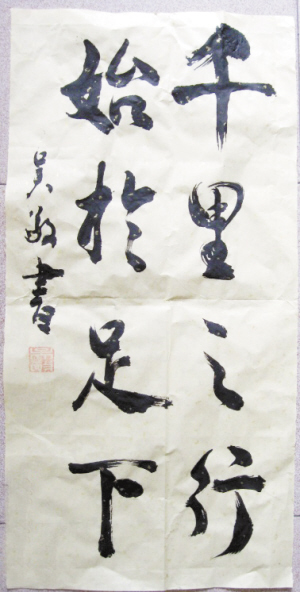 千里之行
始於足下
吴敏書